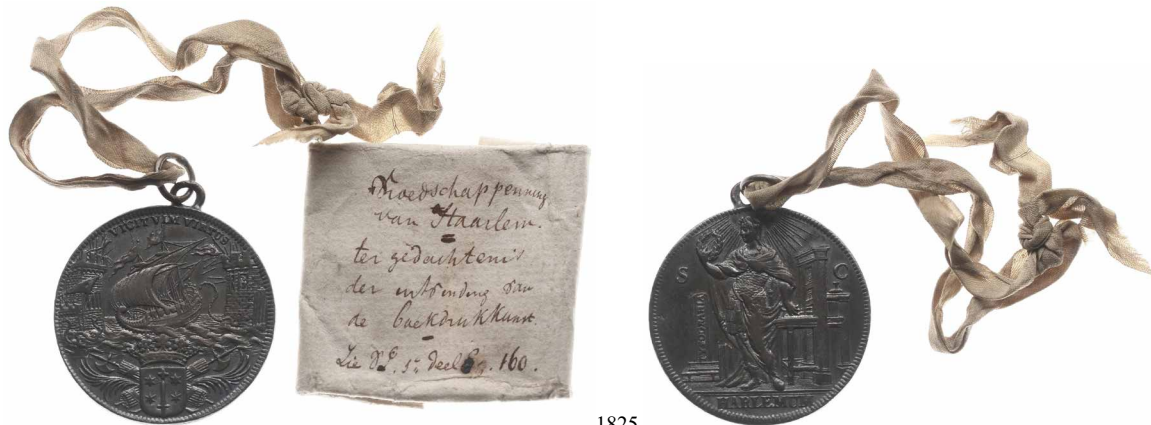 VICIT VIM VIRTUS
Vroedschappenning
van Haarlem.
ter gedachtenis
der uitvinding van
de boekdrukkunst.
Zie V.L. 5e deel pg. 160.
S C
HARLEMUM
1825